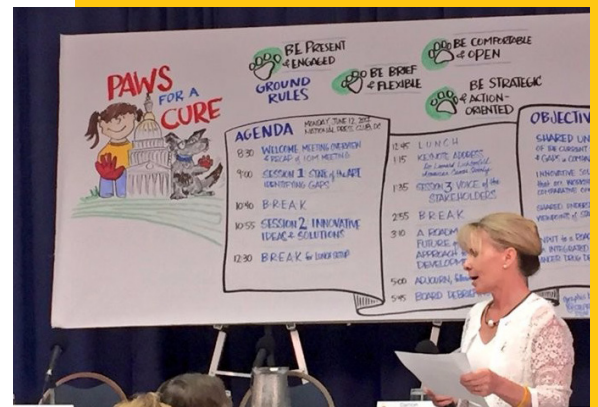 PAWS
FOR A
CURE
BE PRESENT
& ENGAGED
GROUND
RULES
BE BRIEF
& FLEXIBLE
BE COMFORTABLE
& OPEN
BE STRATEGIC
& ACTION-
ORIENTED
AGENDA
MONDAY JUNE 12,
NATIONAL PRESS CLUB, DC
8:30 WELCOME MEETING OVERVIEW
& RECAP of IOM MEETING
9:00 SESSION 1 STATE of the ART
IDENTIFYING GAPS
10:40 BREAK
10:55 SESSION 2 INNOVATIVE
IDEAS & SOLUTIONS
12:30 BREAK for LUNCH SETUP
12:45 LUNCH
1:15 KEYNOTE ADDRESS
American Cancer Society
1:35 SESSION 3 VOICE of the
STAKEHOLDERS
2:55 BREAK
3:10 A ROADM
FUTURE
APPROACH
DEVELOPM
5:00 ADJOURN,
5:45 BOARD DEBRIE
OBJECTIV
SHARED UN
OF THE CURRENT
& GAPS
INNOVATIVE SOL
SHARED
VIEWPOINT of
INPUT for a ROAD
INTEGRATED